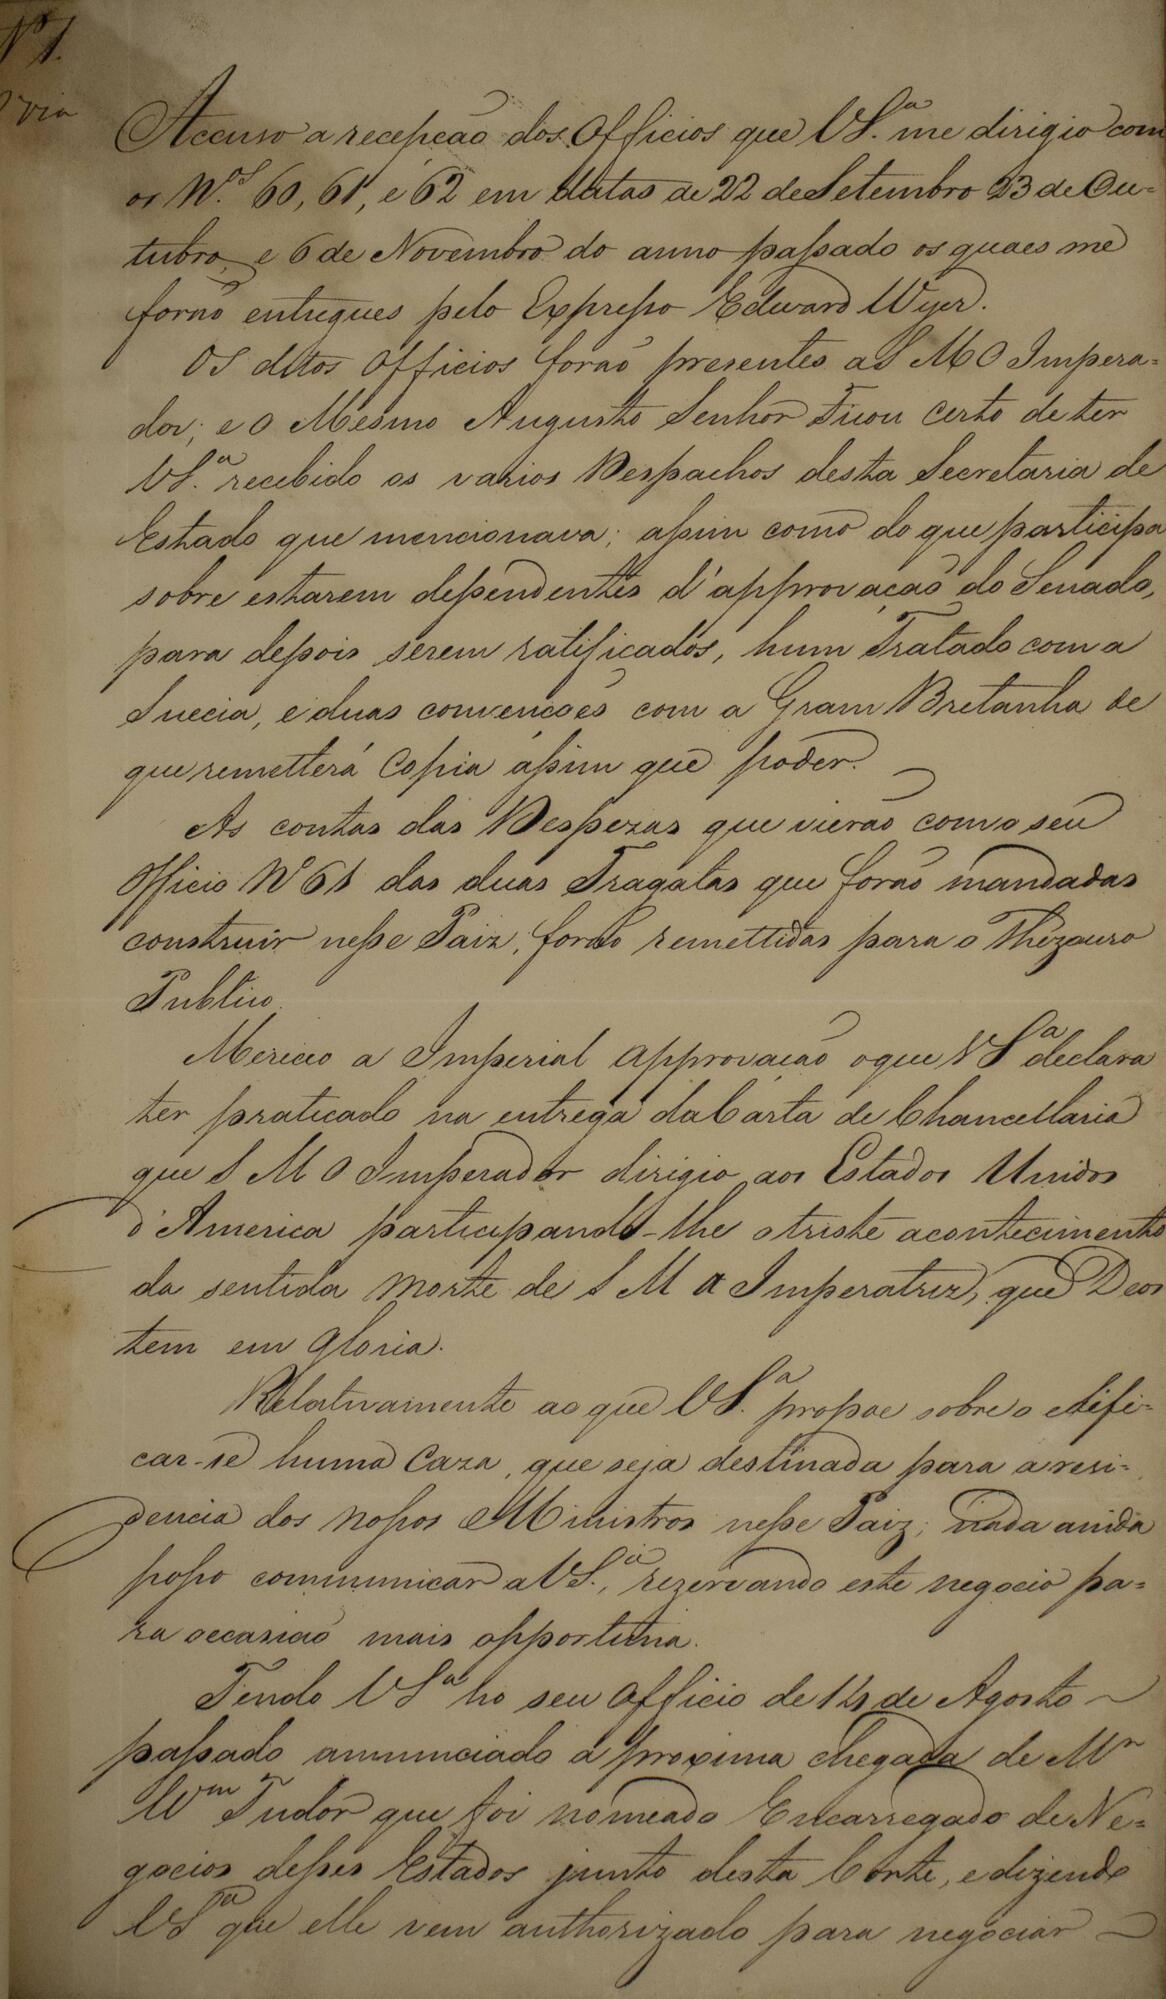 Nº 1.
via
Accuso a recepção dos Officios que VS.ª me dirigio com
os N.ºs 60, 61, e 62 em datas de 22 de Setembro 23 de Ou-
tubro, e 6 de Novembro do anno passado os quaes me
forão entregues pelo Expresso Edward Wyer.
Os ditos Officios forão presentes a S M O Impera-
dor; e O Mesmo Augusto Senhor Ficou certo de ter
VS.ª recebido os varios Despachos desta Secretaria de
Estado que mencionava; assim como do que participa
sobre estarem dependentes d'approvação do Senado,
para depois serem ratificados, hum Tratado com a
Suecia, e duas convenções com a Gram Bretanha de
que remetterá Copia assim que poder.
As contas das Despezas que vierão com o seu
Officio Nº 61 das duas Fragatas que forão mandadas
construir nesse Paiz, forão remettidas para o Thezouro
Publico.
Mereceo a Imperial approvação o que VSª declara
ter praticado na entrega da Carta de Chancellaria
que S M O Imperador dirigio aos Estados Unidos
d'America participando-lhe o triste acontecimento
da sentida morte de S M a Imperatriz, que Deos
tem em Gloria.
Relativamente ao que VS.ª propoe sobre o edifi-
car-se huma Caza, que seja destinada para a resi-
dencia dos nossos Ministros nesse Paiz; nada ainda
posso communicar a VS.ª, rezervando este negocio pa-
ra occasião mais opportuna.
Tendo VSª no seu Officio de 14 de Agosto
passado annunciado a proxima chegada de Mr
Wm Tudor que foi nomeado Encarregado de Ne-
gocios desses Estados junto desta Corte, e dizendo
VSª que elle vem authorizado para negociar